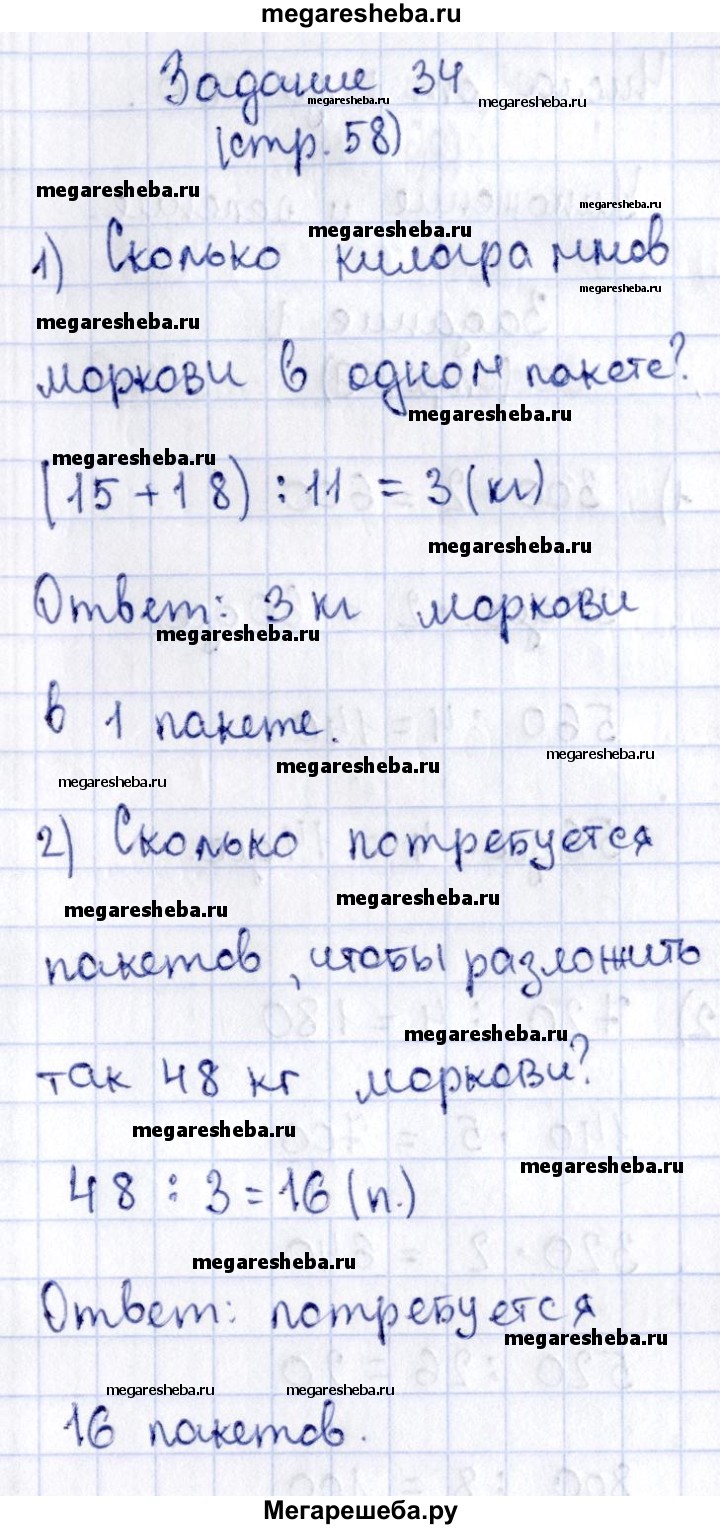 megaresheba.ru
Задание 34
megaresheba.ru
megaresheba.ru
(стр. 58)
megaresheba.ru
megaresheba.ru
megaresheba.ru
1) Сколько килограммов
megaresheba.ru
megaresheba.ru
моркови в одном пакете?
megaresheba.ru
megaresheba.ru
(15 + 18) : 11 = 3 (кг)
megaresheba.ru
Ответ: 3 кг моркови
megaresheba.ru
в 1 пакете.
megaresheba.ru
megaresheba.ru
megaresheba.ru
2) Сколько потребуется
megaresheba.ru
megaresheba.ru
пакетов, чтобы разложить
megaresheba.ru
так 48 кг моркови?
megaresheba.ru
megaresheba.ru
48 : 3 = 16 (п.)
megaresheba.ru
Ответ: потребуется
megaresheba.ru
megaresheba.ru
megaresheba.ru
16 пакетов.
Мегарешеба.ру